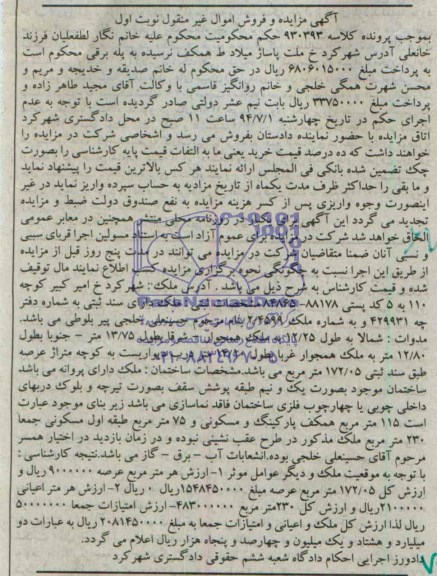 آگهی مزایده و فروش اموال غیر منقول نوبت اول
بموجب پرونده کلاسه ۹۳۰۳۹۳ حکم محکومیت محکوم علیه خانم نگار لطفعلیان فرزند
خانعلی آدرس شهرکرد خ ملت پاساژ میلاد ط همکف نرسیده به پله برقی محکوم است
به پرداخت مبلغ ۶۸۰۶۰۱۵۰۰۰ ریال در حق محکوم له خانم صدیقه و خدیجه و مریم و
محسن شهرت همگی خلجی و خانم روانگیز قاسمی با وکالت آقای مجید طاهر زاده و
پرداخت مبلغ ۳۳۷۵۰۰۰۰ ریال بابت نیم عشر دولتی صادر گردیده است با توجه به عدم
اجرای حکم در تاریخ چهارشنبه ۹۴/۷/۱ ساعت ۱۱ صبح در محل دادگستری شهرکرد
اتاق مزایده با حضور نماینده دادستان بفروش می رسد و اشخاصی شرکت در مزایده را
خواهند داشت که ده درصد قیمت خرید یعنی ما به التفات قیمت پایه کارشناسی را بصورت
چک تضمین شده بانکی فی المجلس ارائه نمایند هر کس بالاترین قیمت را پیشنهاد نماید
و ما بقی را حداکثر ظرف مدت یکماه از تاریخ مزادیه به حساب سپرده واریز نماید در غیر
اینصورت وجوه واریزی پس از کسر هزینه مزایده به نفع صندوق دولت ضبط و مزایده
تجدید می گردد این آگهی برای یک نوبت در روزنامه محلی منتشر همچنین در معابر عمومی
الحاق خواهد شد شرکت در مزایده برای عموم آزاد است به استثناء مسولین اجرا قربای سببی
و نسبی آنان ضمنا متقاضیان شرکت در مزایده می توانند در مدت پنج روز قبل از مزایده
از طریق این اجرا نسبت به چگونگی نحوه برگزاری مزایده کسب اطلاع نمایند مال توقیف
شده و قیمت کارشناس به شرح ذیل می باشد. آدرس ملک: شهرکرد خ امیر کبیر کوچه
۱۱۰ به ۵ کد پستی ۸۸۱۷۸ مشخصات ثبتی: ملک دارای سند ثبتی به شماره دفتر
چه ۴۲۹۹۳۱ و به شماره ملک ۲/۴۵۹۸ بنام مرحوم حسینعلی خلجی پیر بلوطی می باشد.
مدوات: شمالا به طول ۱۲/۲۵ به ملک همجوار – شرقا بطول ۱۳/۷۵ متر – جنوبا بطول
۱۲/۸۰ متر به ملک همجوار غربا بطول ۱۴/۶۰ متر در و دیواریست به کوچه متراژ عرصه
طبق سند ثبتی ۱۷۲/۰۵ متر مربع می باشد.مشخصات ساختمان: ملک دارای پروانه می باشد
ساختمان موجود بصورت یک و نیم طبقه پوشش سقف بصورت تیرچه و بلوک دربهای
داخلی چوبی یا چهارچوب فلزی ساختمان فاقد نماسازی می باشد زیر بنای موجود عبارت
است ۱۱۵ متر مربع همکف پارکینگ و مسکونی و ۷۵ متر مربع طبقه اول مسکونی جمعا
۲۳۰ متر مربع ملک مذکور در طرح عقب نشینی نبوده و در زمان بازدید در اختیار همسر
مرحوم آقای حسینعلی خلجی بوده.انشعابات آب – برق – گاز می باشد.نتیجه کارشناسی:
با توجه به موقعیت ملک و دیگر عوامل موثر ۱- ارزش هر متر مربع عرصه ۹۰۰۰۰۰۰ ریال و
ارزش کل ۱۷۲/۰۵ متر مربع عرصه مبلغ ۱۵۴۸۴۵۰۰۰۰ ریال ۲- ارزش هر متر اعیانی
۲۱۰۰۰۰۰ ریال و ارزش کل ۲۳۰متر مربع ۴۸۳۰۰۰۰۰۰ – ارزش امتیازات جمعا ۵۰۰۰۰۰۰۰
ریال لذا ارزش کل ملک و اعیانی و امتیازات جمعا به مبلغ ۲۰۸۱۴۵۰۰۰۰ ریال به عبارات دو
میلیارد و هشتاد و یک میلیون و چهارصد و پنجاه هزار ریال اعلام می گردد.
دادورز اجرایی احکام دادگاه شعبه ششم حقوقی دادگستری شهرکرد